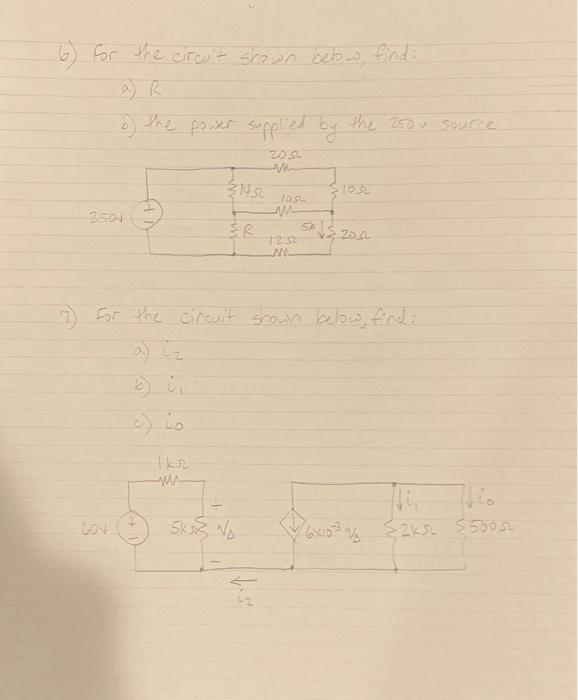 6) For the circuit shown below, find:
a) R
b) the power supplied by the 250v source
20Ω
14Ω 10Ω 10Ω
250V
R 5A 20Ω
12Ω
7) For the circuit shown below, find:
a) i₂
b) i₁
c) i₀
1kΩ
60V + - 5kΩ + V∆ - 6x10⁻³ V∆ i₁ 2kΩ i₀ 500Ω
i₂